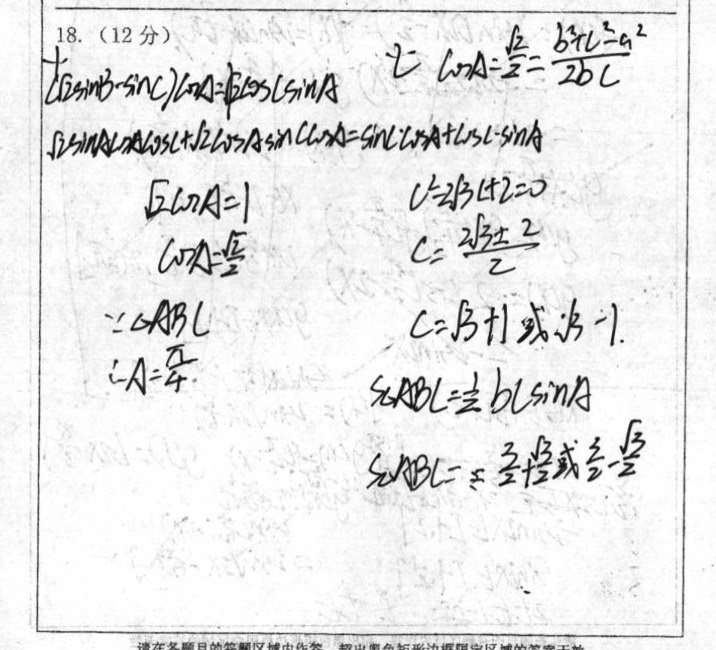 18.（12分）
(√2sinB-sinC)cosA=√2cosCsinA
√2sinAcosAcosC+√2cosAsinCcosA=sinC·cosA+cosC·sinA
√2cosA=1
cosA=√2/2
∵△ABC
∴A=π/4.
2 cosA=√2/2=(b²+c²-a²)/(2bc)
c²-2√3c+2=0
c=(2√3±2)/2
c=√3+1或√3-1.
S△ABC=1/2bcsinA
S△ABC= 3/2+√3/2或3/2-√3/2
请在各题目的答题区域内作答，超出黑色矩形边框限定区域的答案无效